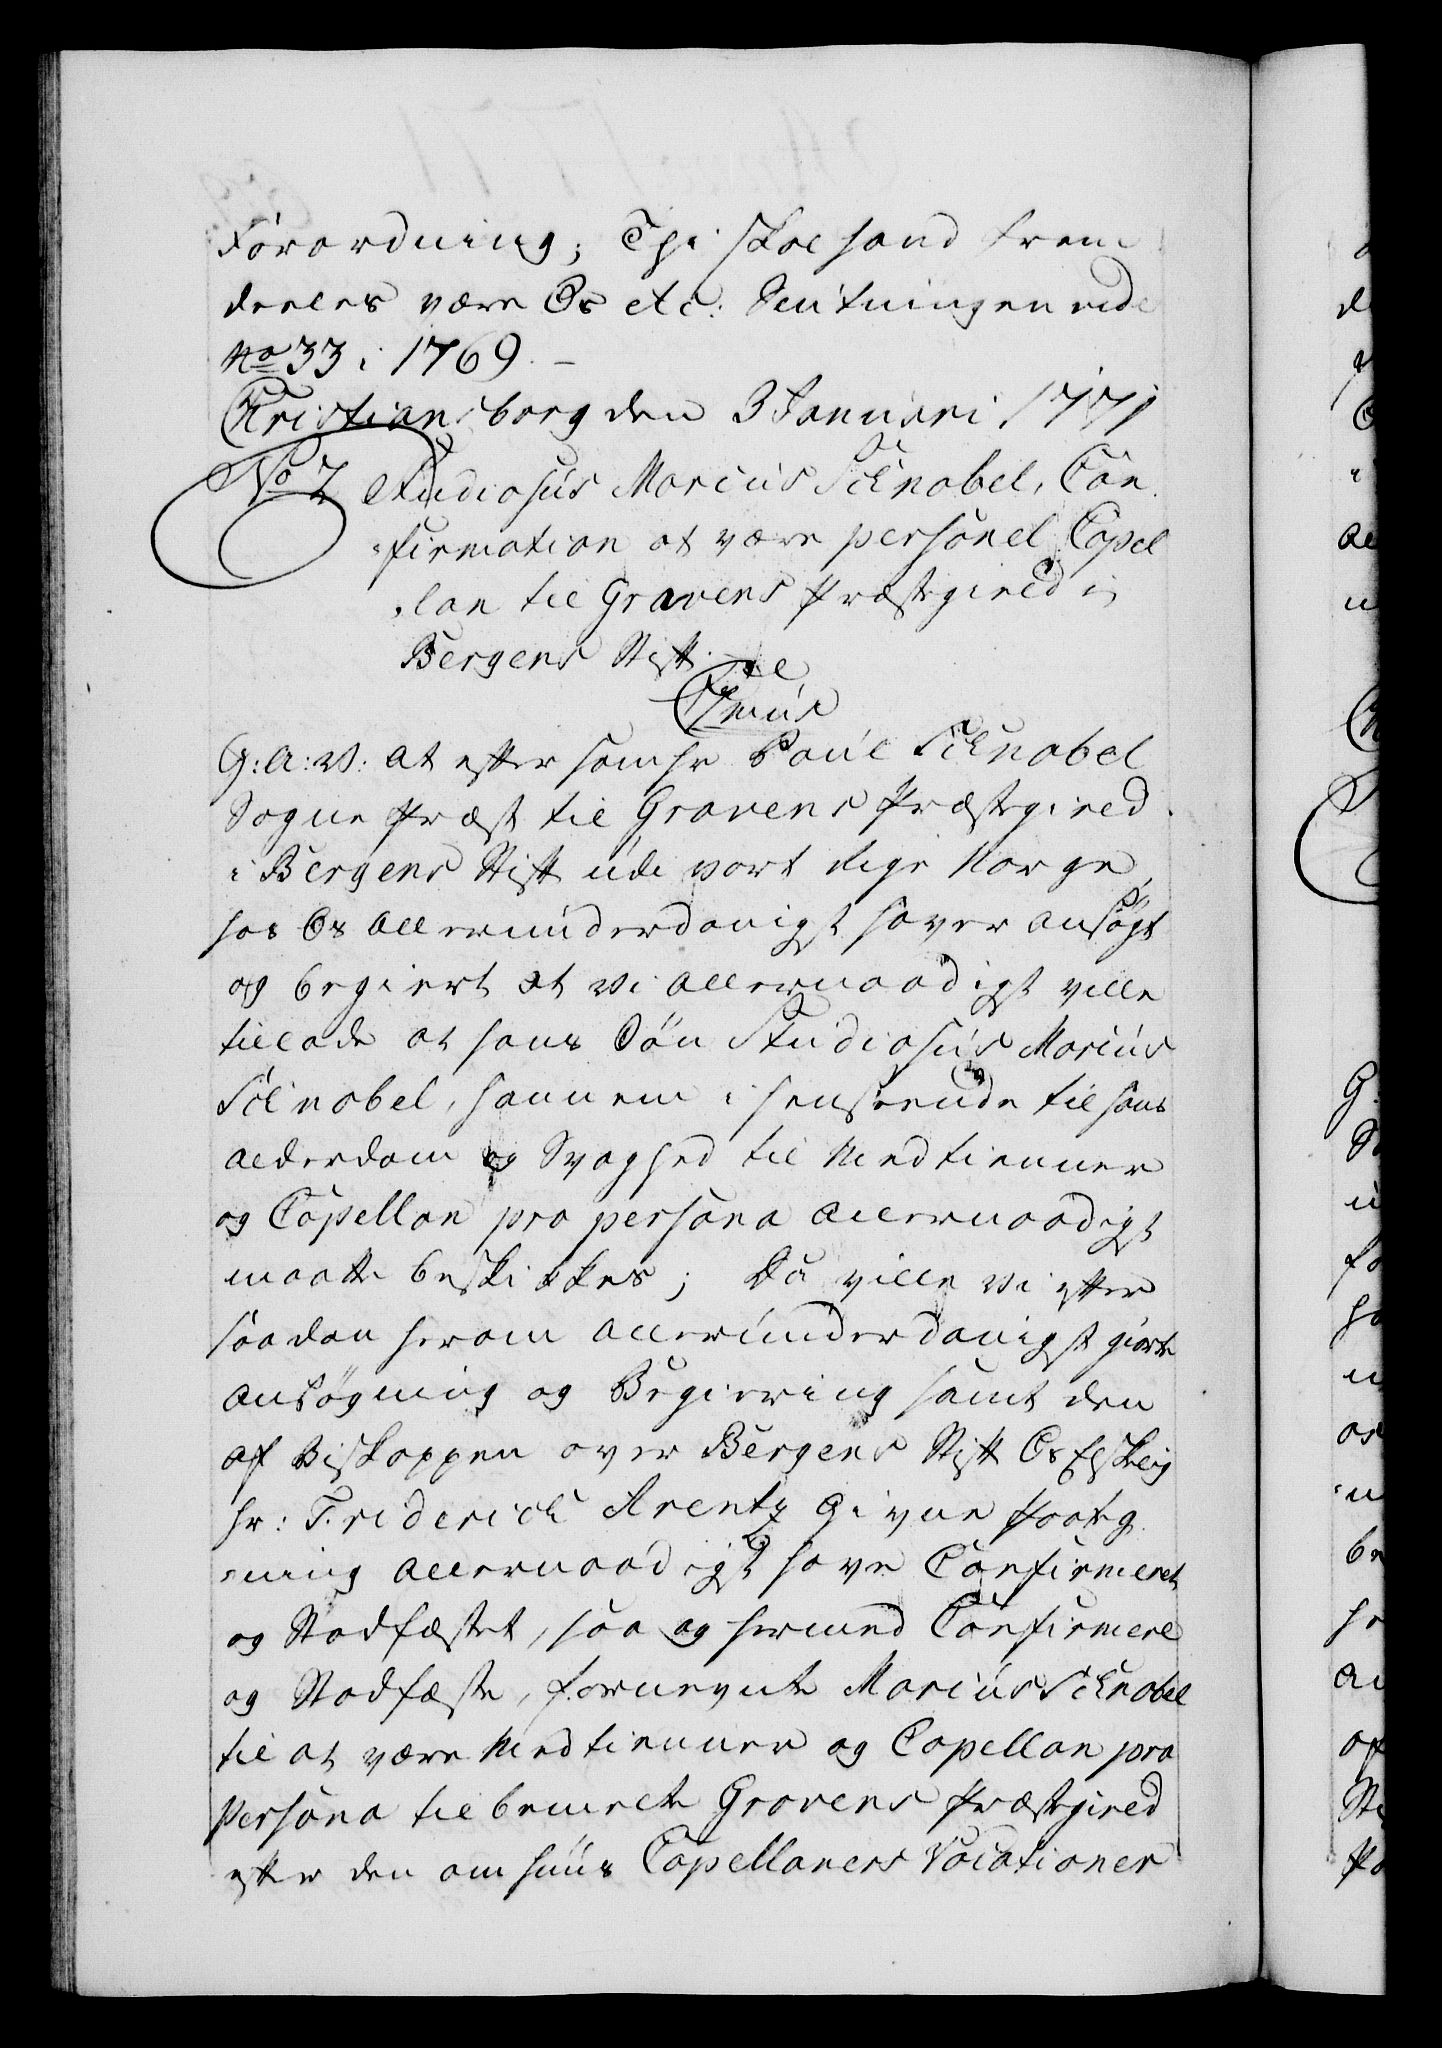 Forordning; Thi skal hand frem
deeles være Os etc: Slutningen vide
No 33 i 1769. –
Christiansborg den 3 Januari 1771
No 7 Studiosus Marcus Schnabel, Con
-firmation at være personel Capel
-lan til Gravens Præstegield i
Bergens Stift.
G: A: V: at eftersom hr Poul Schnabel
Sogne Præst til Gravens Præstegield
i Bergens Stift udi vort Rige Norge,
hos Os allerunderdanigst haver ansøgt
og begiert at vi allernaadigst ville
tillade at hans Søn Studiosus Marcus
Schnabel, hannem i henseende til hans
alderdom og Svaghed til Medtienner
og Capellan pro persona allernaadigst
maatte beskikkes; Da ville vi efter
saadan herom allerunderdanigst giorte
ansøgning og Begiering samt den
af Biskoppen over Bergens Stift Os Elskelig
hr: Friderich Arentz Givne Paateg
-ning allernaadigst have Confirmeret
og Stadfæstet, saa og hermed Confirmere
og Stadfæste, fornevnte Marcus Schnabel
til at være Medtienner og Capellan pro
Persona til bemelte Gravens Præstegield
efter den om huus Capellaners Vocationer